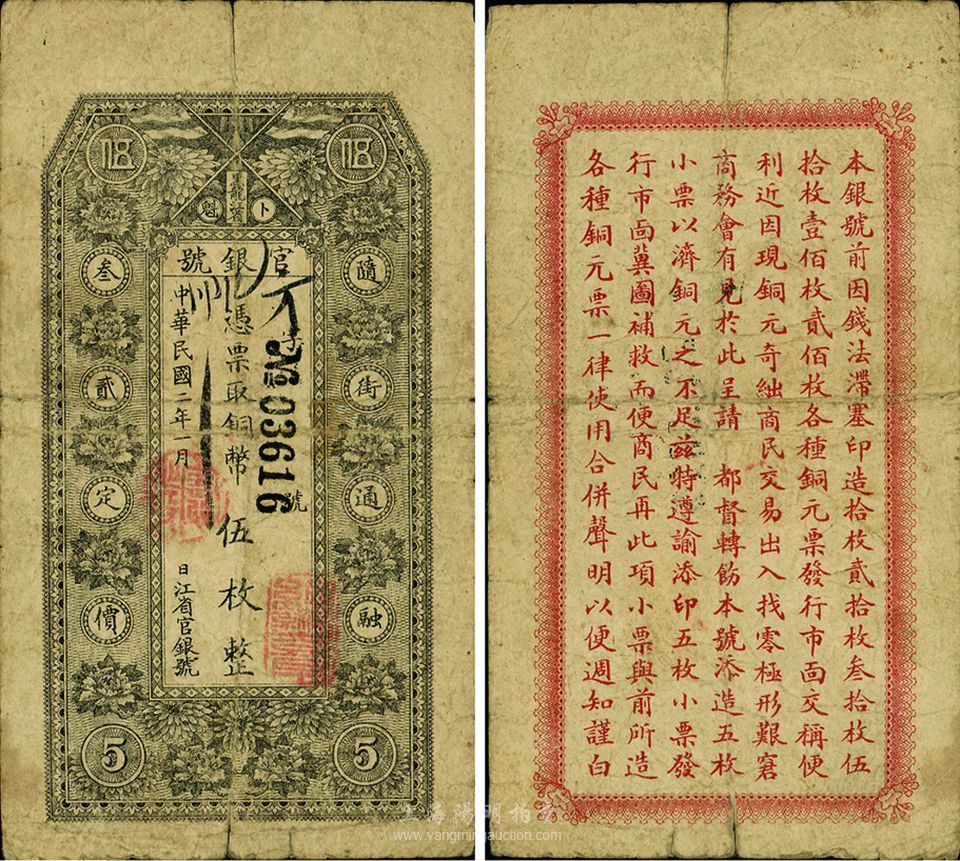 伍
伍
官銀號
字
№03616
號
憑票取銅幣伍枚整
中華民國二年一月
日江省官銀號
隨街通融
叁貳定價
5
5
本銀號前因錢法滯塞印造拾枚貳拾枚叁拾枚伍
拾枚壹佰枚貳佰枚各種銅元票發行市面交稱便
利近因現銅元奇絀商民交易出入找零極形艱窘
商務會有見於此呈請 都督轉飭本號添造五枚
小票以濟銅元之不足茲特遵諭添印五枚小票發
行市面冀圖補救而便商民再此項小票與前所造
各種銅元票一律使用合併聲明以便週知謹白
上海陽明拍賣
www.yangmingauction.com